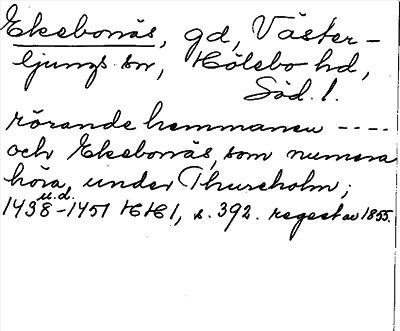 Ekebonäs, gd, Väster-
ljungs sn, Hölebo hd,
Söd. l.
rörande hemmanen ----
och Ekebonäs, som numera
höra under Thureholm;
u.d.
1438-1451 HH 1, s. 392. regest av 1855.